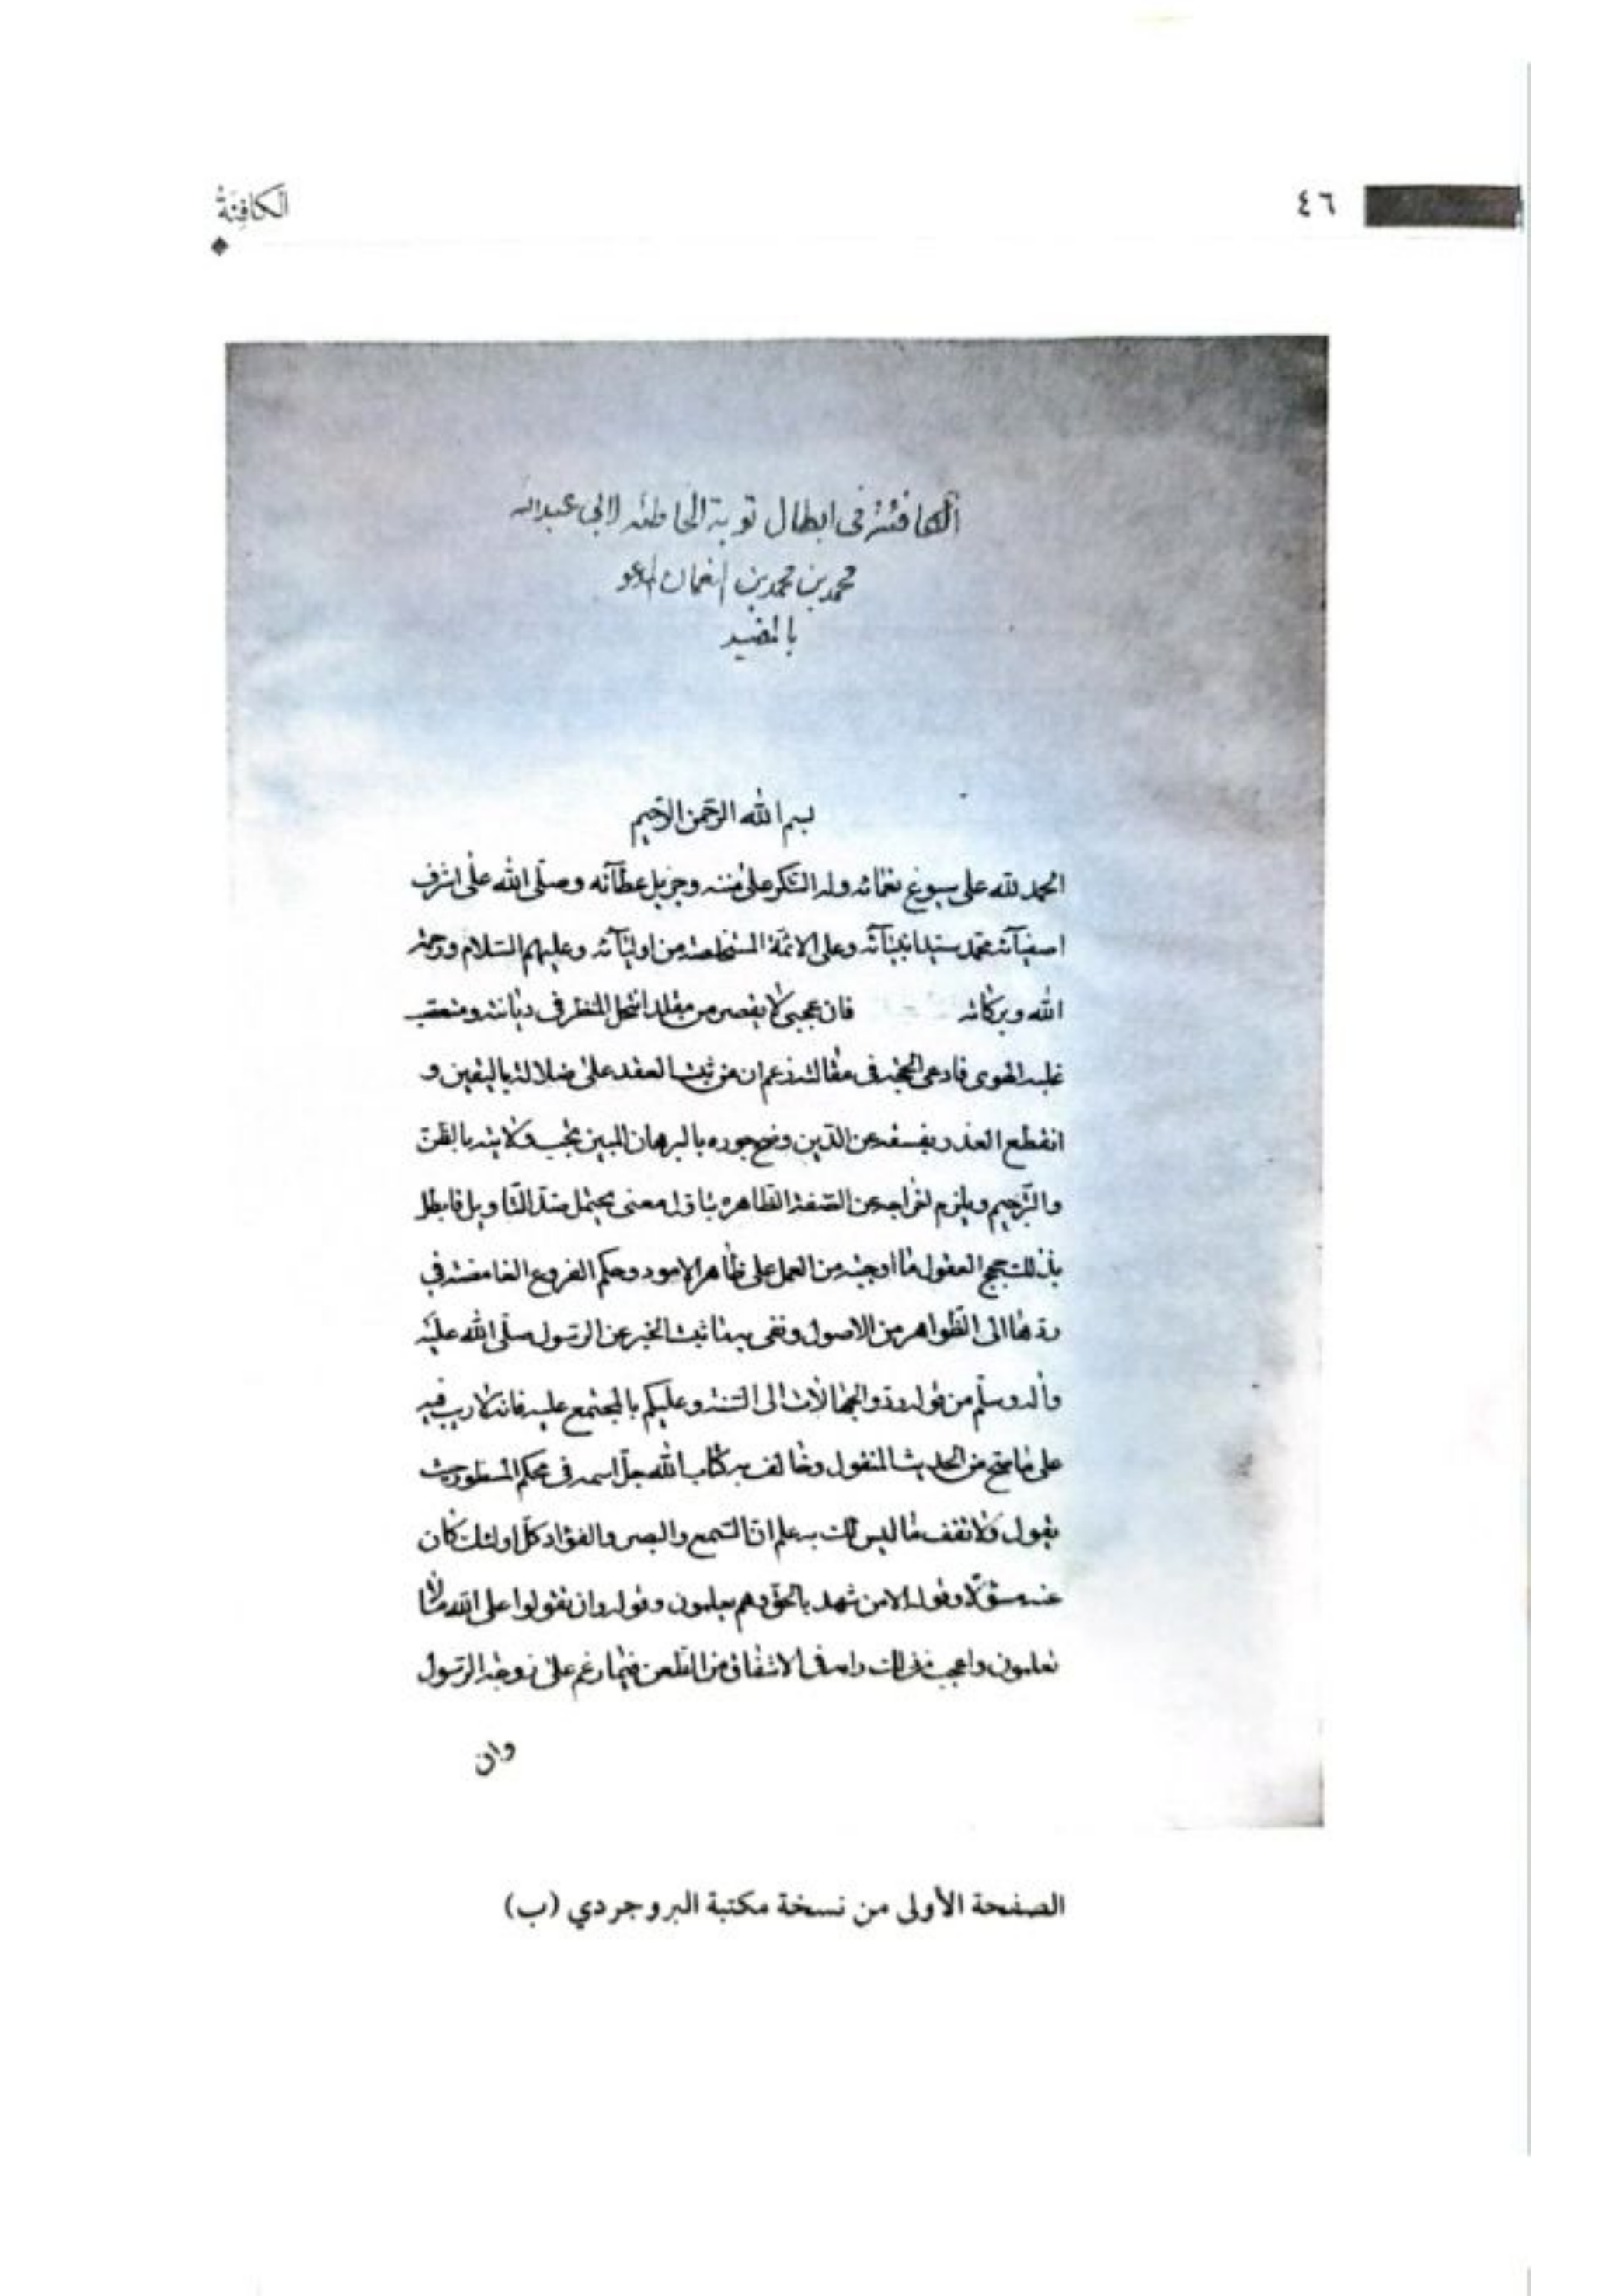 ٤٦
الكافئة
الكافئة في ابطال توبة الخاطئه لابي عبدالله
محمد بن محمد بن النعمان المدعو
بالمفيد
بسم الله الرحمن الرحيم
الحمد لله على سبوغ نعمائه وله الشكر على مننه وجزيل عطآئه وصلى الله على اشرف
اصفيآئه محمد سيد انبيآئه وعلى الائمة المستخلصة من اوليآئه وعليهم السلام ورحمة
الله وبركاته فان عجبي لا يقصر من مقلد انتحل النظر في ديانته ومتعقب
غلبه الهوى فادعى الحجة في مقالته زعم ان من ثبت العقد على ضلالته باليقين و
انقطع العذر بفسقه عن الدين وضح جوره بالبرهان المبين يجب ولايته بالظن
والترجيم ويلزم اخراجه عن الصفة الظاهرة بتاول معنى يحتمل ضد التاويل فابطل
بذلك حجج العقول ما اوجبته من العمل على ظاهر الامور وحكم الفروع الغامضة في
ردها الى الظواهر من الاصول ونفى به ما ثبت الخبر عن الرسول صلى الله عليه
وآله وسلم من قوله ردوا الجهالات الى السنة وعليكم بالمجتمع عليه فانه لا ريب فيه
على ما صح من الحديث المنقول وخالف به كتاب الله جل اسمه في محكم المسطور حيث
يقول ولا تقف ما ليس لك به علم ان السمع والبصر والفؤاد كل اولئك كان
عنه مسؤلا وقوله الا من شهد بالحق وهم يعلمون وقوله وان تقولوا على الله ما لا
تعلمون واعجب من ذلك الاشفاق من الطعن فيما زعم على زوجة الرسول
وان
الصفحة الأولى من نسخة مكتبة البروجردي (ب)